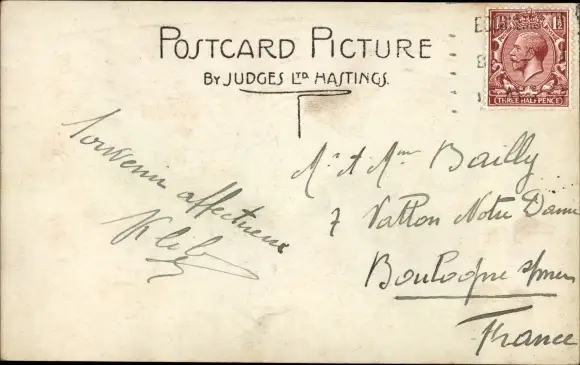 POSTCARD PICTURE
BY JUDGES LTD HASTINGS.
1½ 1½
(THREE HALF PENCE)
Souvenir affectueux
Mr & Mme Bailly
7 Vallon Notre Dame
Boulogne s/mer
France